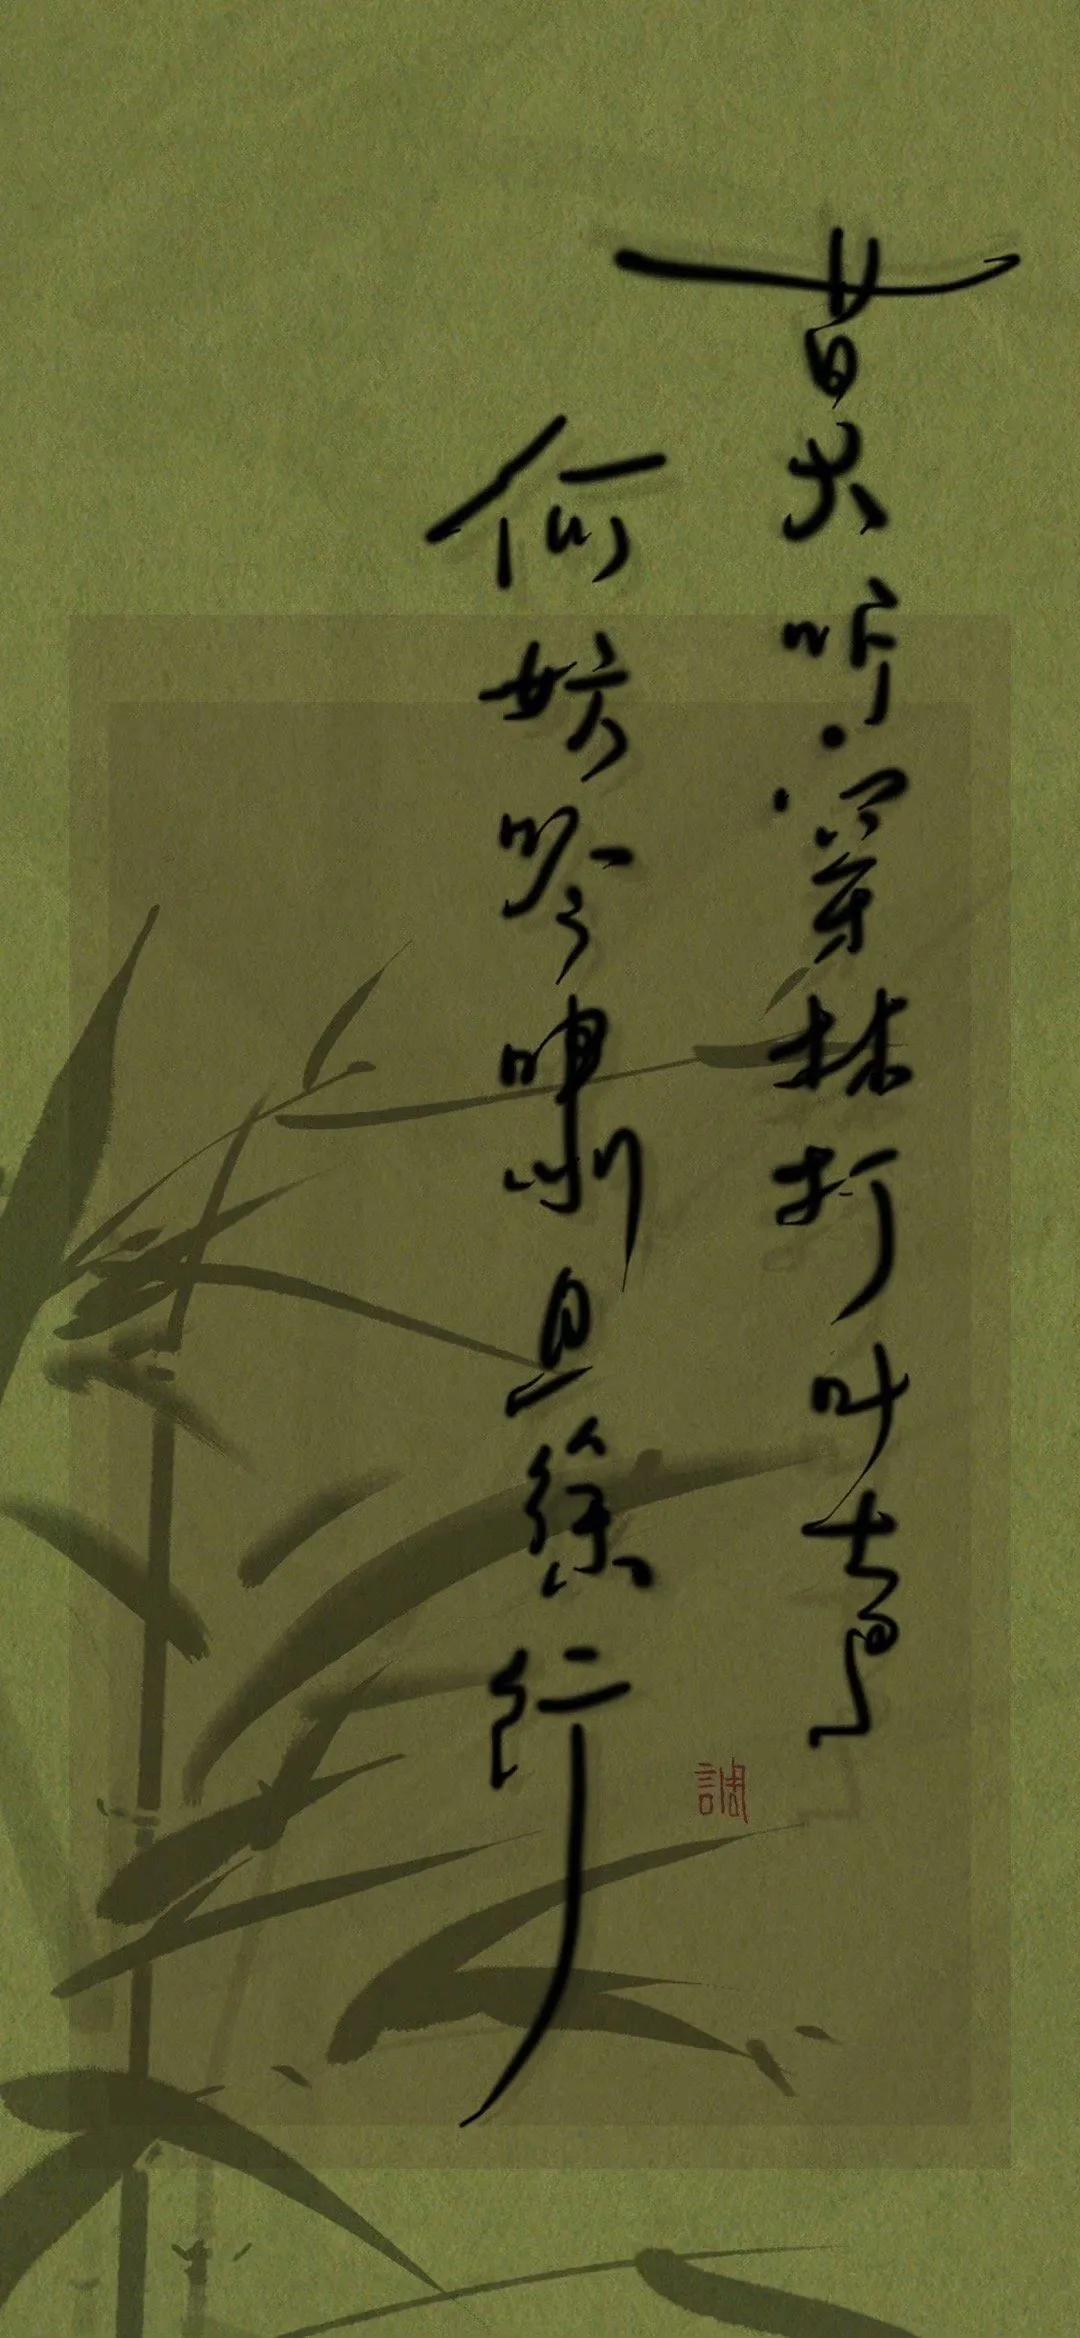 莫听穿林打叶声
何妨吟啸且徐行
調